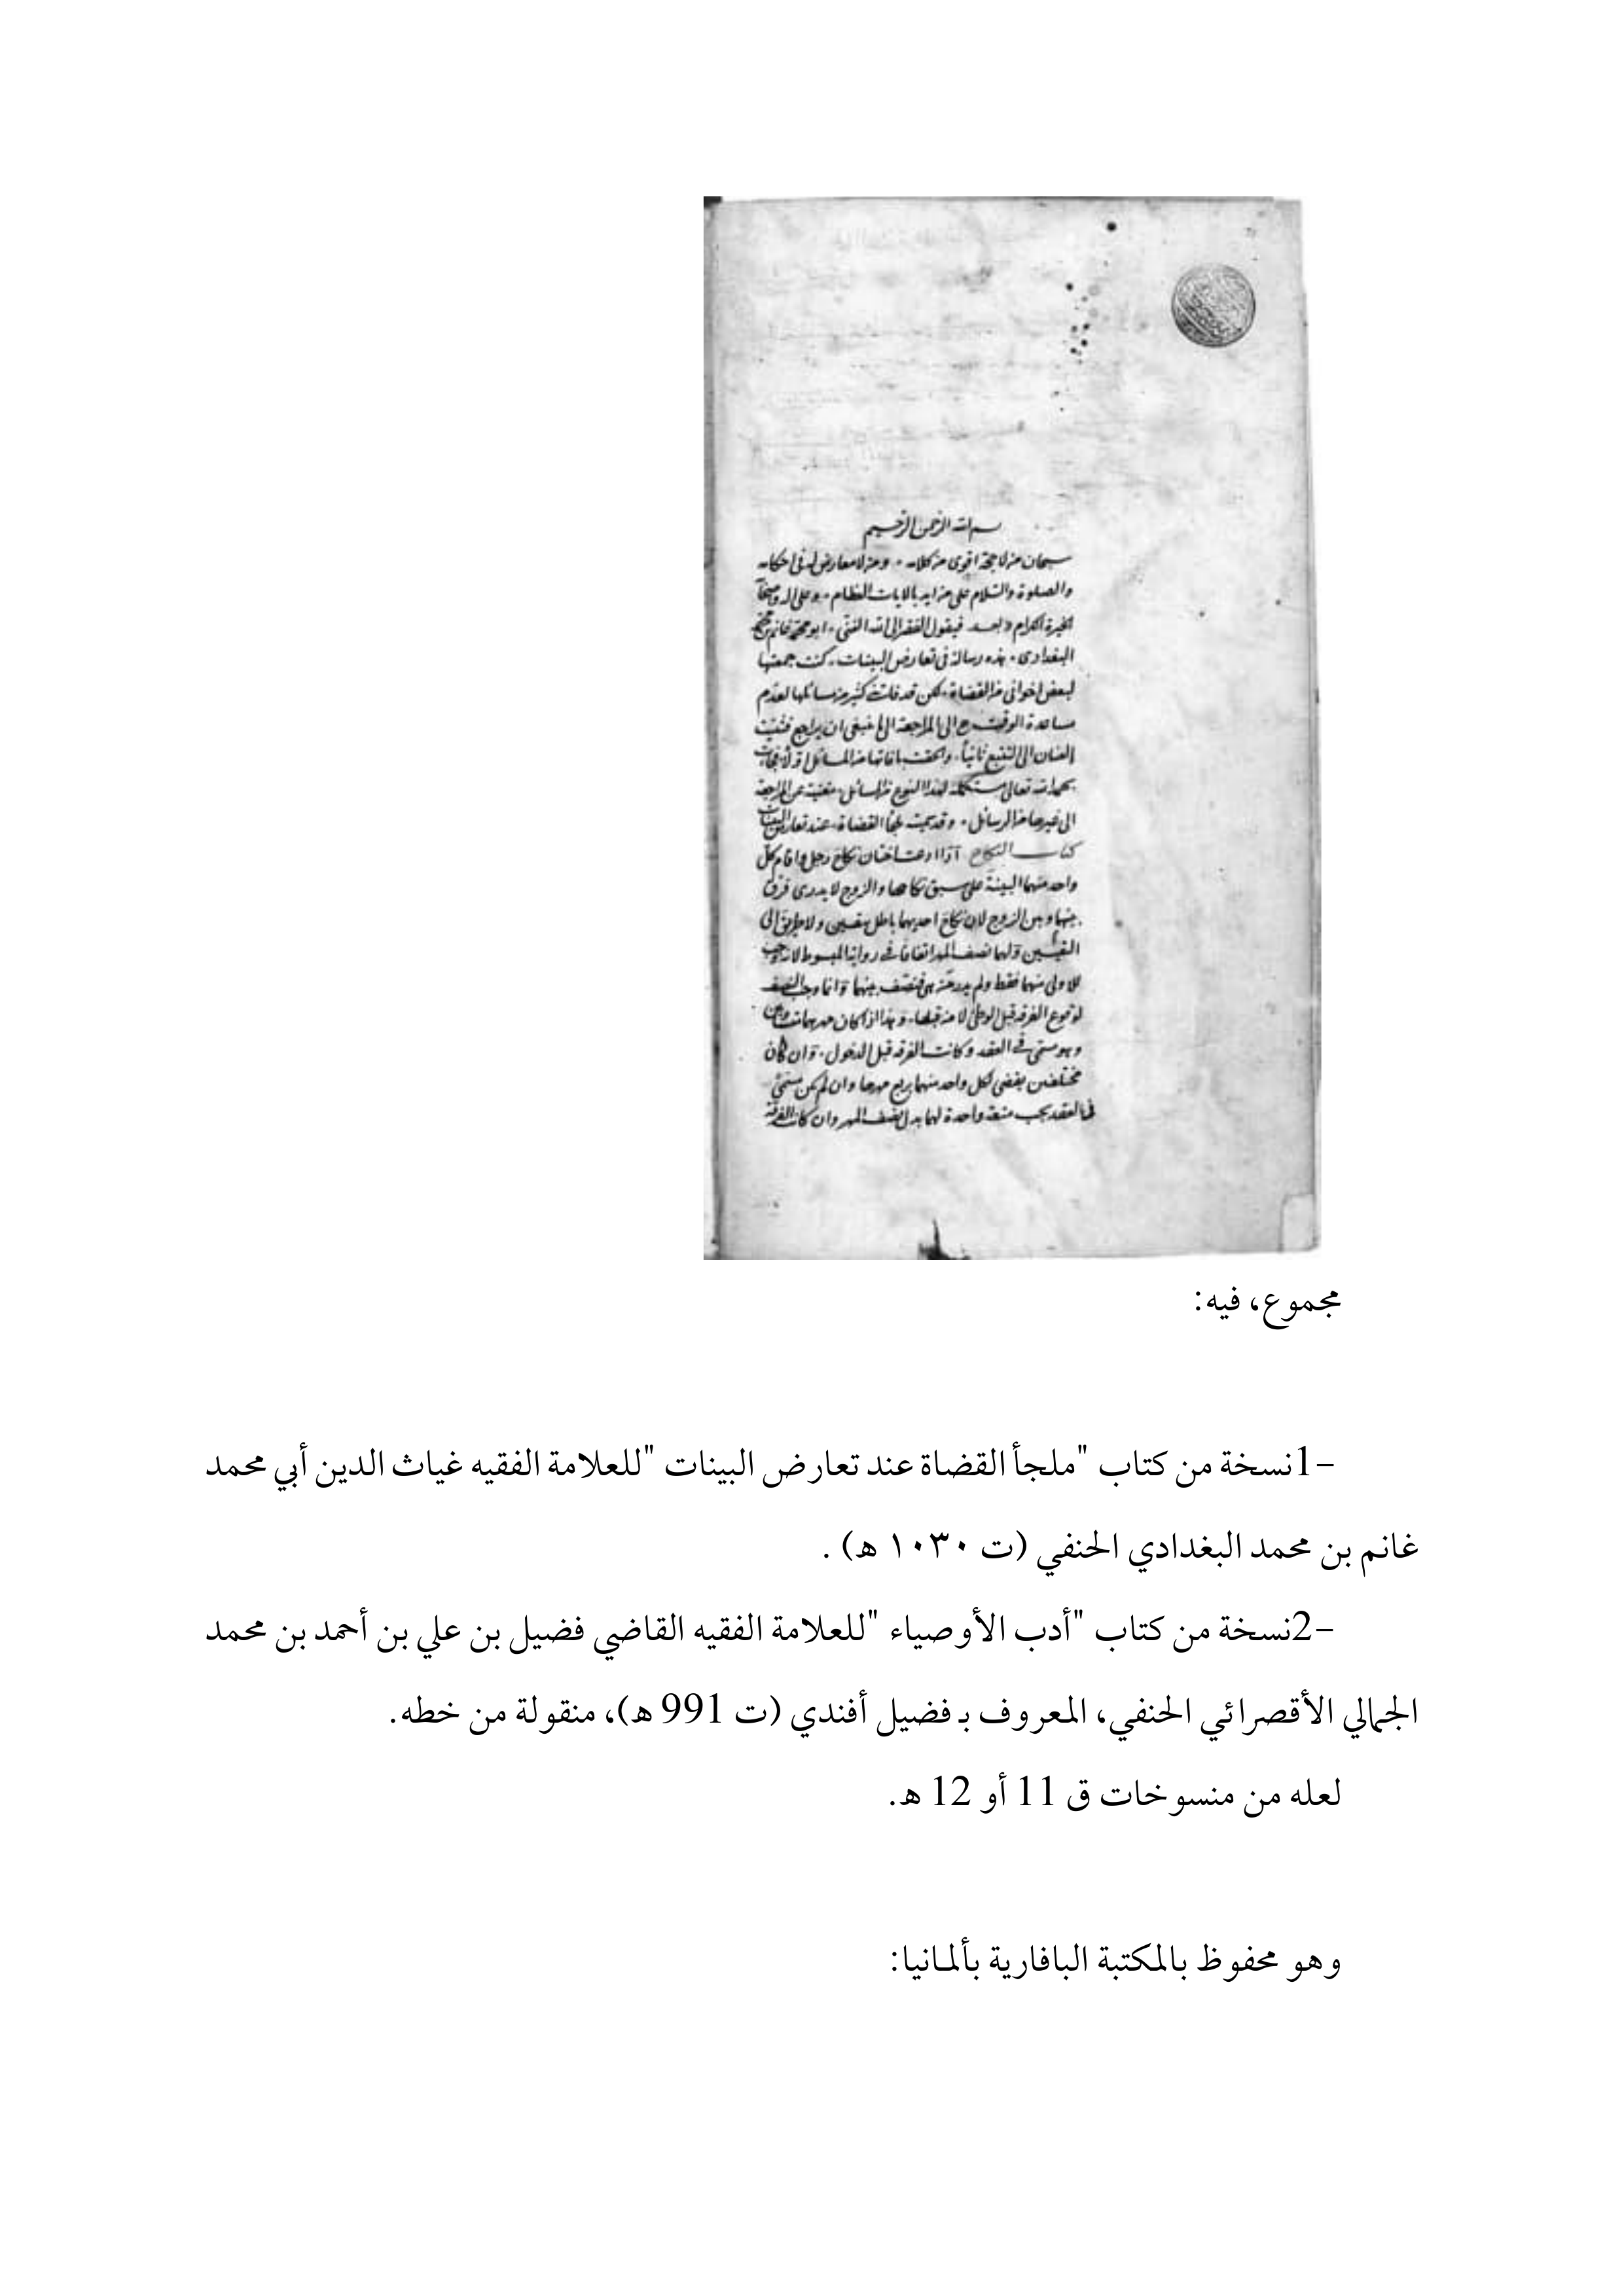 بسم الله الرحمن الرحيم
سبحان من لا حجة اقوى من كلامه ومن لا معارض له في احكامه
والصلوة والسلام على من ايد بالايات العظام وعلى اله وصحبه
الخيرة الكرام وبعد فيقول الفقير الى الله الغني ابو محمد غانم بن محمد
البغدادى هذه رسالة في تعارض البينات كنت جمعتها
لبعض اخواني من القضاة لكن قد فاتت كثير من مسائلها لعدم
مساعدة الوقت ح الى المراجعة الى ما ينبغي ان يراجع فثنيت
العنان الى التتبع ثانياً والحقت ما فاتها من المسائل اولاً فجاءت
بحمد الله تعالى مستكملة لهذا النوع من المسائل مغنية عن المراجعة
الى غيرها من الرسائل وقد سميته ملجأ القضاة عند تعارض البينات
كتاب النكاح اذا ادعت اختان نكاح رجل واقام كل
واحد منهما البينة على سبق نكاحها والزوج لا يدرى فرق
بينهما وبين الزوج لان نكاح احديهما باطل بيقين ولا طريق الى
التعيين ولهما نصف المهر اتفاقا في رواية المبسوط لانه وجب
للاولى منهما فقط ولم يدر من هي فتنصف بينهما وانما وجب النصف
لوقوع الفرقة قبل الوطئ لا من قبلها وهذا اذا كان مهريهما متساويين
وهو مسمى في العقد وكانت الفرقة قبل الدخول وان كان
مختلفين يقضى لكل واحد منهما بربع مهرها وان لم يكن مسمى
في العقد يجب متعة واحدة لهما بدل نصف المهر وان كانت الفرقة
مجموع، فيه:
-1نسخة من كتاب "ملجأ القضاة عند تعارض البينات "للعلامة الفقيه غياث الدين أبي محمد
غانم بن محمد البغدادي الحنفي (ت ١٠٣٠ هـ) .
-2نسخة من كتاب "أدب الأوصياء "للعلامة الفقيه القاضي فضيل بن علي بن أحمد بن محمد
الجمالي الأقصرائي الحنفي، المعروف بـ فضيل أفندي (ت 991 هـ)، منقولة من خطه.
لعله من منسوخات ق 11 أو 12 هـ.
وهو محفوظ بالمكتبة البافارية بألمانيا: